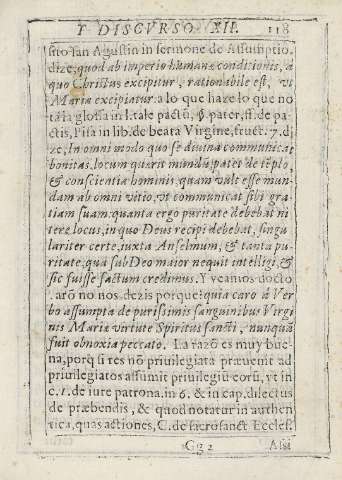 T DISCVRSO XII. 118
sito san Agustin in sermone de Assumptio.
dize, quod ab imperio humanæ conditionis, a
quo Christus excipitur, rationabile est, vt
Maria excipiatur. a lo que haze lo que no
ta la glossa in l. tale pactũ, §. pater, ff. de pa-
ctis, Pisa in lib. de beata Virgine, fruct. 7. di
ze, In omni modo quo se diuina communicat
bonitas, locum quærit mundũ, patet de tẽplo,
& conscientia hominis, quam vult esse mun-
dam ab omni vitio, vt communicat sibi gra-
tiam suam. quanta ergo puritate debebat ni
tere locus, in quo Deus recipi debebat, singu
lariter certe, iuxta Anselmum, & tanta pu-
ritate, qua sub Deo maior nequit intelligi, &
sic fuisse factum credimus. Y veamos docto
.arō no nos dezis porque: quia caro à Ver
bo assumpta de purissimis sanguinibus Virgi
nis Mariæ virtute Spiritus sancti, nunquã
fuit obnoxia peccato. La razō es muy bue-
na, porq̃ si res nō priuilegiata præuenit ad
priuilegiatos assumit priuilegiũ eorũ, vt in
c. 1. de iure patrona. in 6. & in cap. dilectus
de præbendis, & quod notatur in authen
tica, quas actiones, C. de sacrosanct. Eccles.
Gg 2 Assi